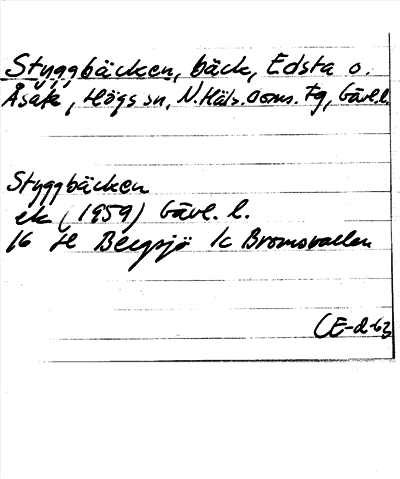 Styggbäcken, bäck, Edsta o.
Åsäk, Högs sn, N. Häls. doms. Fg, Gävl. l.
Styggbäcken
ek (1959) Gävl. l.
16 H Bergsjö 1c Bromsvallen
CE-d-63